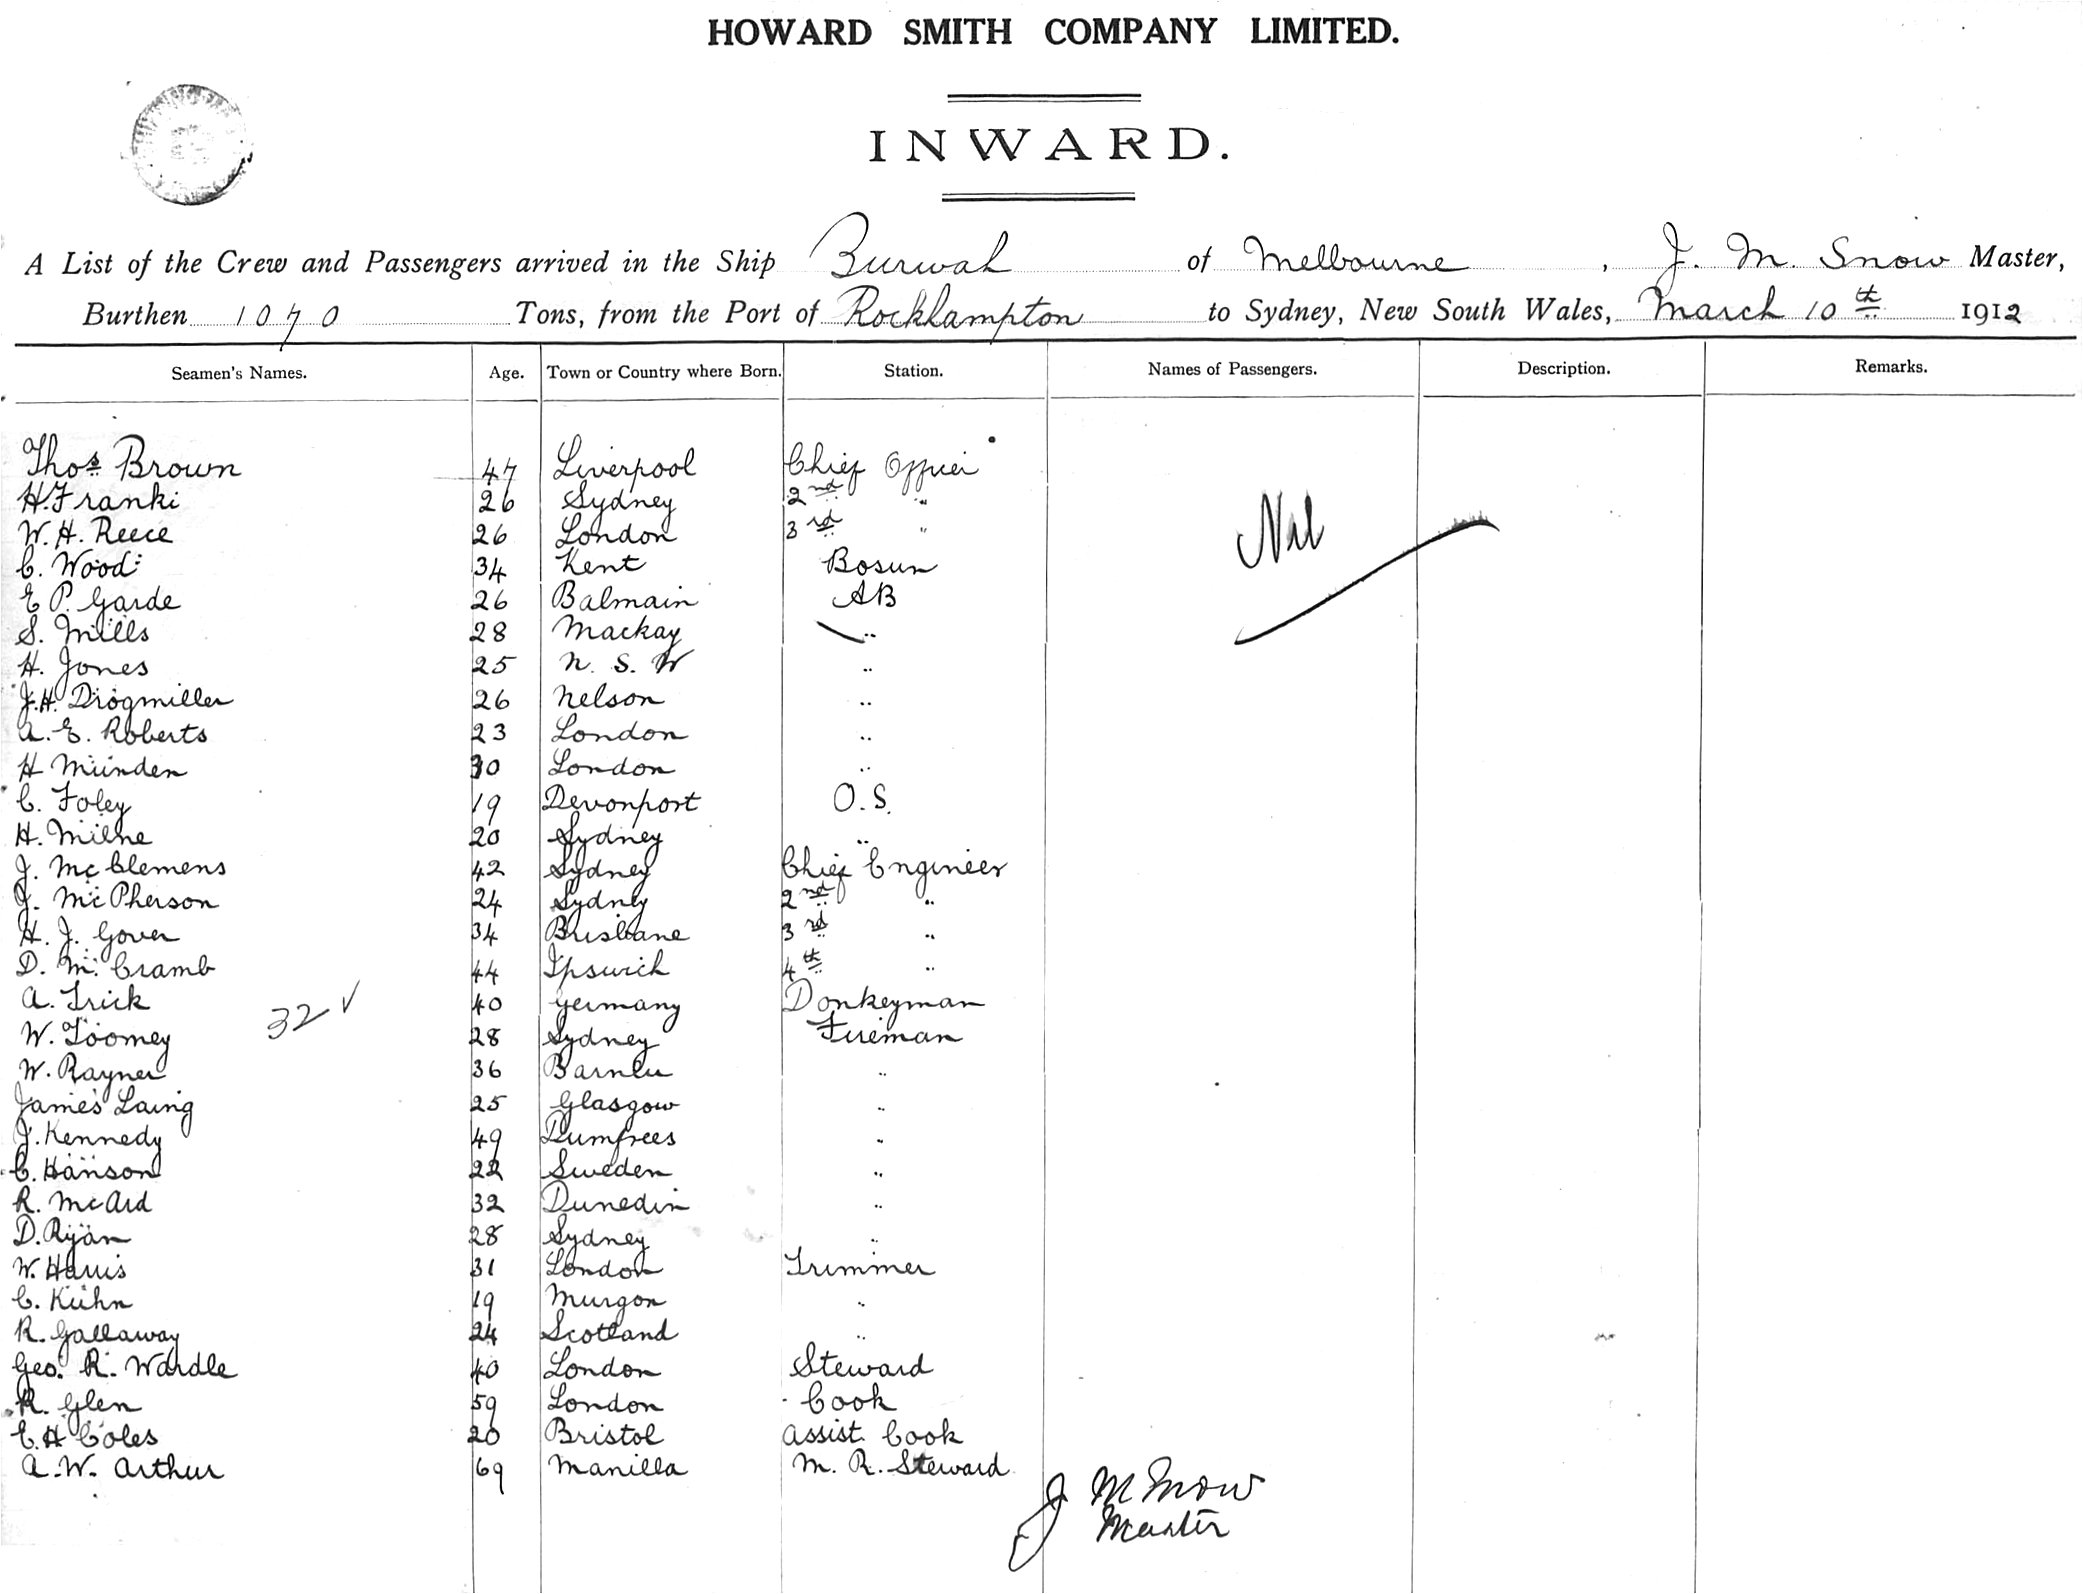 HOWARD SMITH COMPANY LIMITED.
INWARD.
A List of the Crew and Passengers arrived in the Ship Burwah of Melbourne, J. M. Snow Master,
Burthen 1070 Tons, from the Port of Rockhampton to Sydney, New South Wales, March 10th 1912
Seamen's Names. Age. Town or Country where Born. Station. Names of Passengers. Description. Remarks.
Thos Brown 47 Liverpool Chief Officer
H. Franki 26 Sydney 2nd "
W. H. Reece 26 London 3rd " Nil
C. Wood 34 Kent Bosun
E P. Garde 26 Balmain AB
S. Mills 28 Mackay "
H. Jones 25 N. S. W "
J.H. Drogmiller 26 Nelson "
A. E. Roberts 23 London "
H Munden 30 London "
C. Foley 19 Devonport O.S.
H. Milne 20 Sydney "
J. McClemens 42 Sydney Chief Engineer
J. McPherson 24 Sydney 2nd "
H. J. Gover 34 Brisbane 3rd "
D. M. Cramb 44 Ipswich 4th "
A. Frick 40 Germany Donkeyman
32 ✓
W. Toomey 28 Sydney Fireman
W. Rayner 36 "
James Laing 25 Glasgow "
J. Kennedy 49 Dumfrees "
C. Hanson 22 Sweden "
R. McArd 32 Dunedin "
D. Ryan 28 Sydney "
W. Harris 31 London Trimmer
C. Kuhn 19 Murgon "
R. Gallaway 24 Scotland "
Geo. R. Wardle 40 London Steward
R. Glen 59 London Cook
C. H Coles 20 Bristol Assist. Cook
A. W. Arthur 69 Manilla M. R. Steward
J M Snow
Master